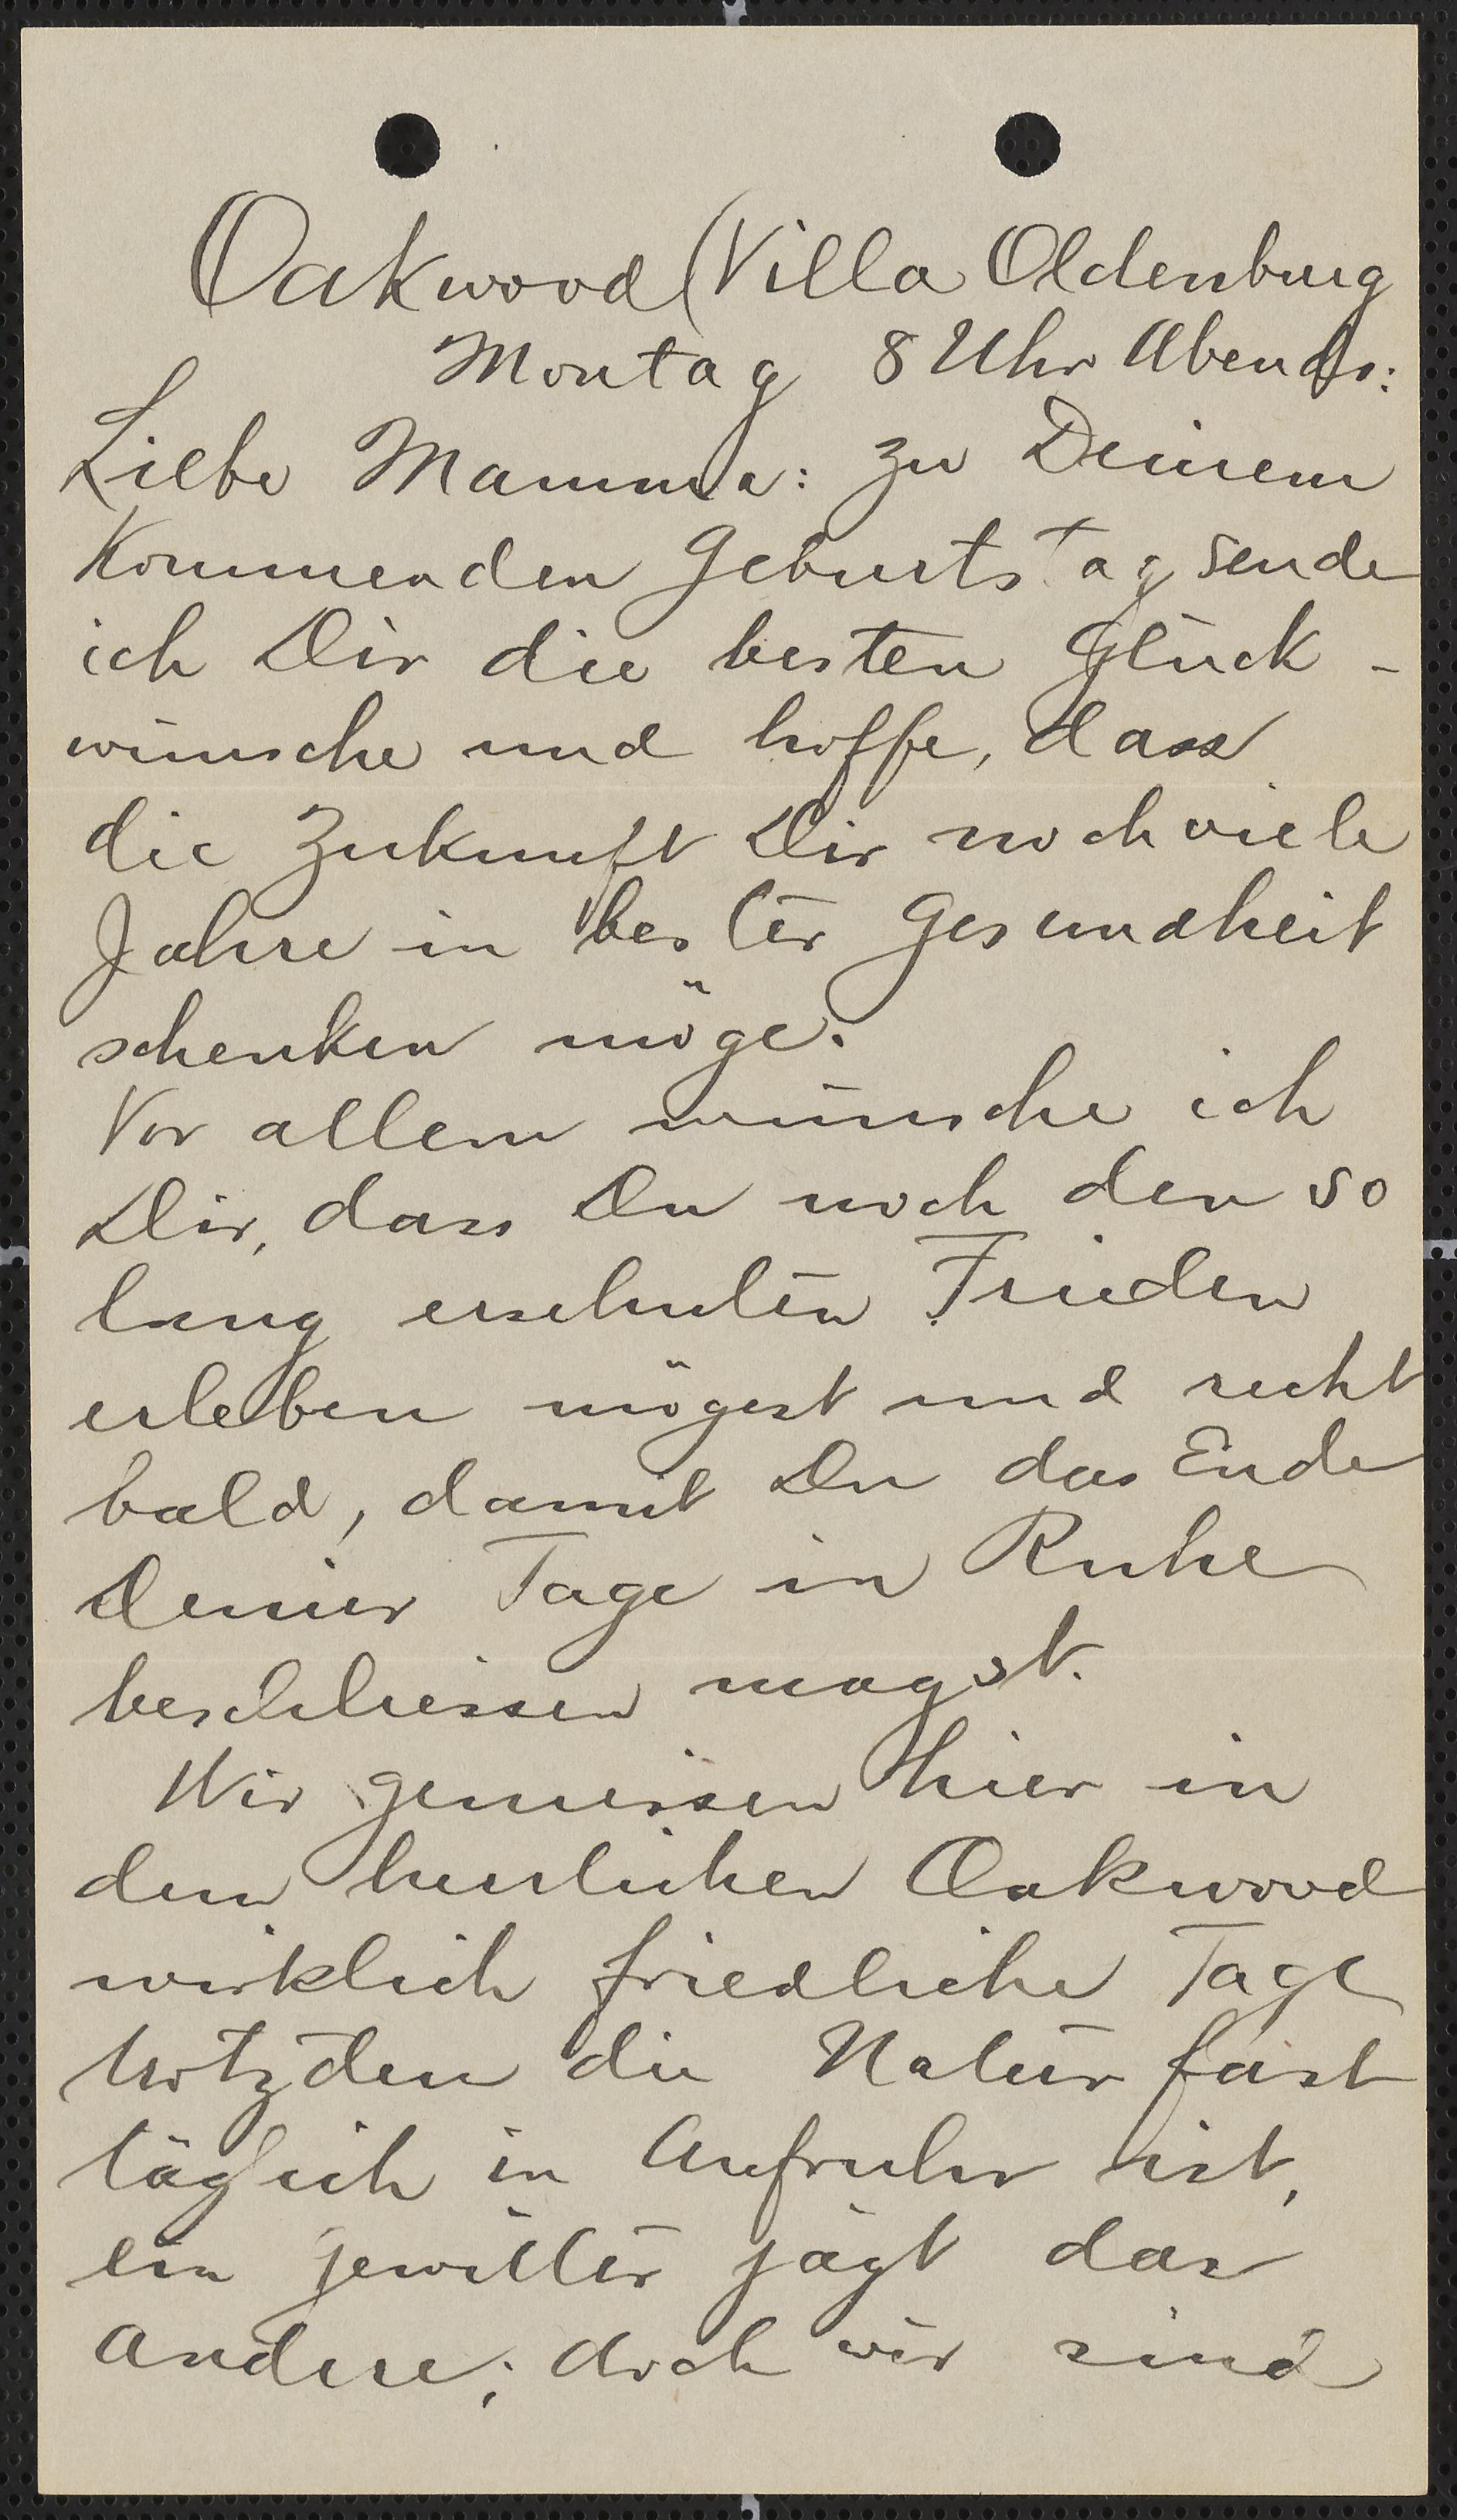 Oakwood (Villa Oldenburg
Montag 8 Uhr Abends:
Liebe Mamma: zu Deinem
Kommenden Geburtstag sende
ich Dir die besten Glück-
wünsche und hoffe, dass
die Zukunft Dir noch viele
Jahre in bester Gesundheit
schenken möge.
Vor allem wünsche ich
Dir, dass Du noch den so
lang ersehnten Frieden
erleben mögest und recht
bald, damit Du das Ende
Deiner Tage in Ruhe
beschliessen magst.
Wir geniessen hier in
dem herrlichen Oakwood
wirklich friedliche Tage
trotzdem die Natur fast
täglich in Aufruhr ist,
ein Gewitter jagt das
andere; doch wir sind